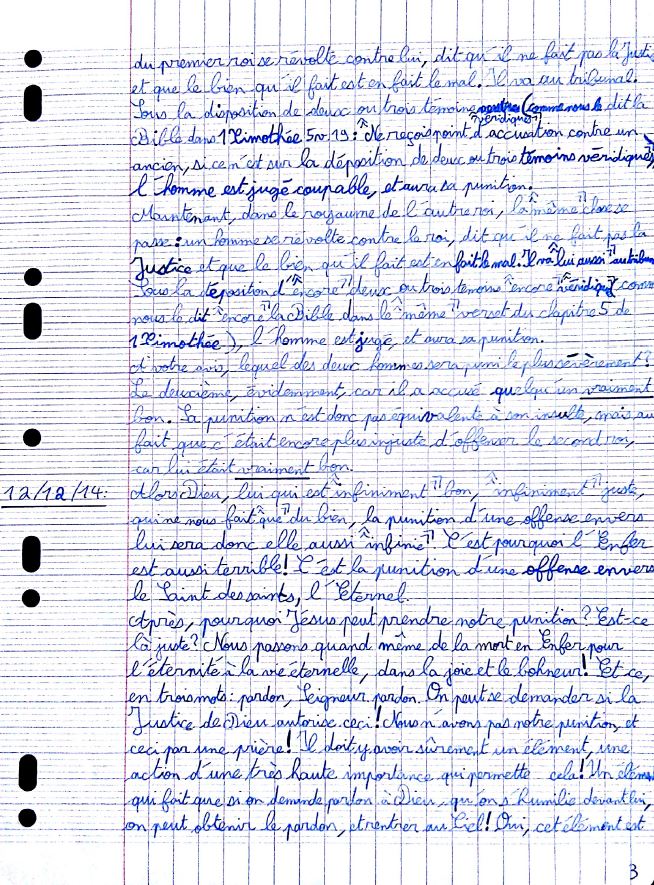 du premier roi se révolte contre lui, dit qu'il ne fait pas la Justi
et que le bien qu'il fait est en fait le mal. Il va au tribunal.
Sous la disposition de deux ou trois témoins (comme nous le dit la
"véridiques"
Bible dans 1 Timothée 5v.19: "Ne reçois point d'accusation contre un
ancien, si ce n'est sur la déposition de deux ou trois témoins véridiques",
l'homme est jugé coupable, et aura sa punition.
Maintenant, dans le royaume de l'autre roi, la "même" chose se
passe: un homme se révolte contre le roi, dit qu'il ne fait pas la
Justice et que le bien qu'il fait est en fait le mal. Il va lui aussi au tribun
Sous la déposition d'"encore" deux ou trois témoins "encore" "véridiq" (comm
nous le dit "encore" la Bible dans le "même" verset du chapitre 5 de
1 Timothée), l'homme est jugé, et aura sa punition.
A votre avis, lequel des deux hommes sera puni le plus sévèrement?
Le deuxième, évidemment, car il a accusé quelqu'un vraiment
bon. Sa punition n'est donc pas équivalente à son insulte, mais au
fait que c'était encore plus injuste d'offenser le second roi,
car lui était vraiment bon.
12/12/14:
Alors Dieu, lui qui est "infiniment" bon, "infiniment" juste,
qui ne nous fait "que" du bien, la punition d'une offense envers
lui sera donc elle aussi "infinie". C'est pourquoi l'Enfer
est aussi terrible! C'est la punition d'une offense envers
le Saint des saints, l'Eternel.
Après, pourquoi Jésus peut prendre notre punition? Est-ce
là juste? Nous passons quand même de la mort en Enfer pour
l'éternité à la vie éternelle, dans la joie et le bohneur! Et ce,
en trois mots: pardon, Seigneur, pardon. On peut se demander si la
Justice de Dieu autorise ceci! Nous n'avons pas notre punition, et
ceci par une prière! Il doit y avoir sûrement un élément, une
action d'une très haute importance qui permette cela! Un élémen
qui fait que si on demande pardon à Dieu, qu'on s'humilie devant lui,
on peut obtenir le pardon, et rentrer au Ciel! Oui, cet élément est
3